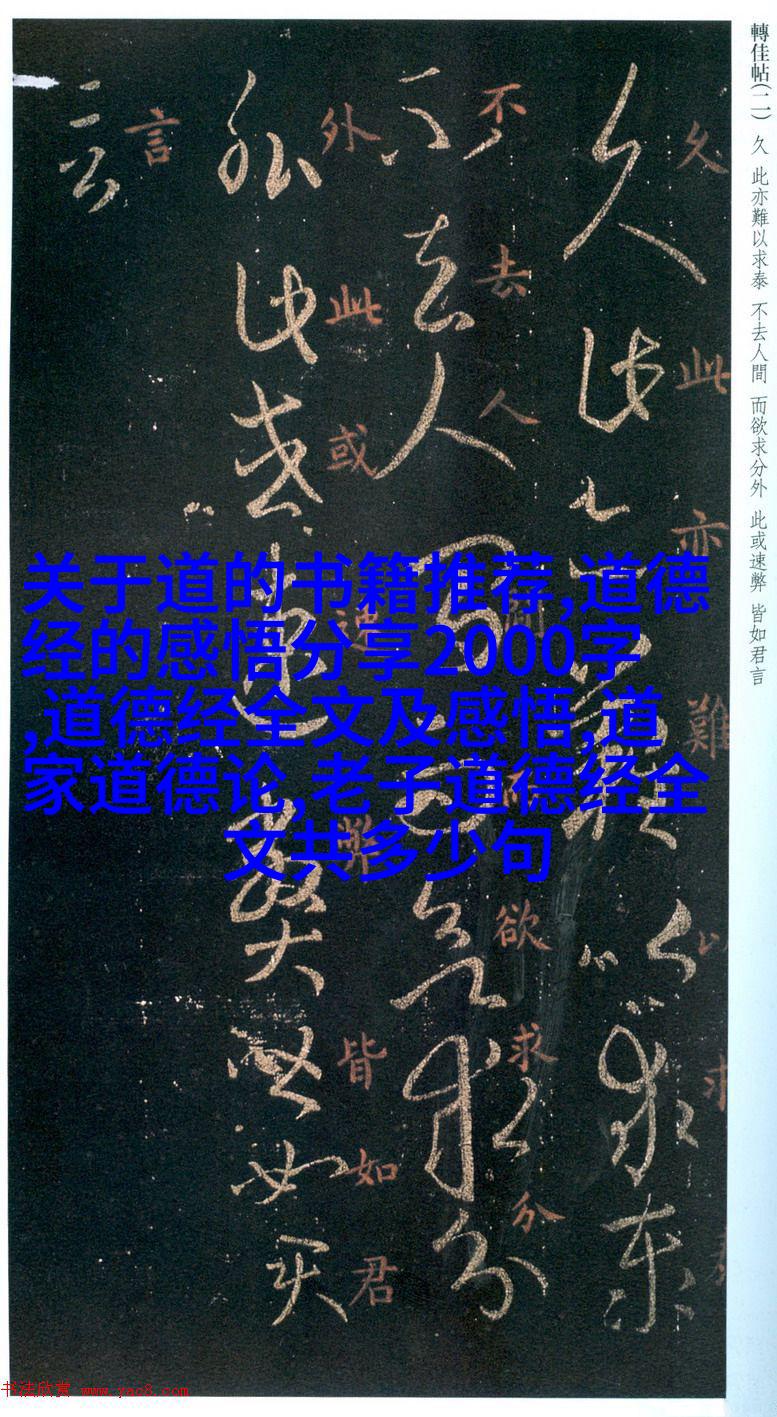 轉佳帖(二) 久 此亦難以求泰 不去人間 而欲求分外 此或速弊 皆如君言
久此亦難以求泰
久此亦難以求泰
不去人間而欲求分
不去人間而欲求分
外此或速弊皆如君
外此或速弊皆如君
言
言
关于道的书籍推荐,道德
经的感悟分享2000字
,道德经全文及感悟,道
家道德论,老子道德经全
文共多少句
书法欣赏 www.yac8.com